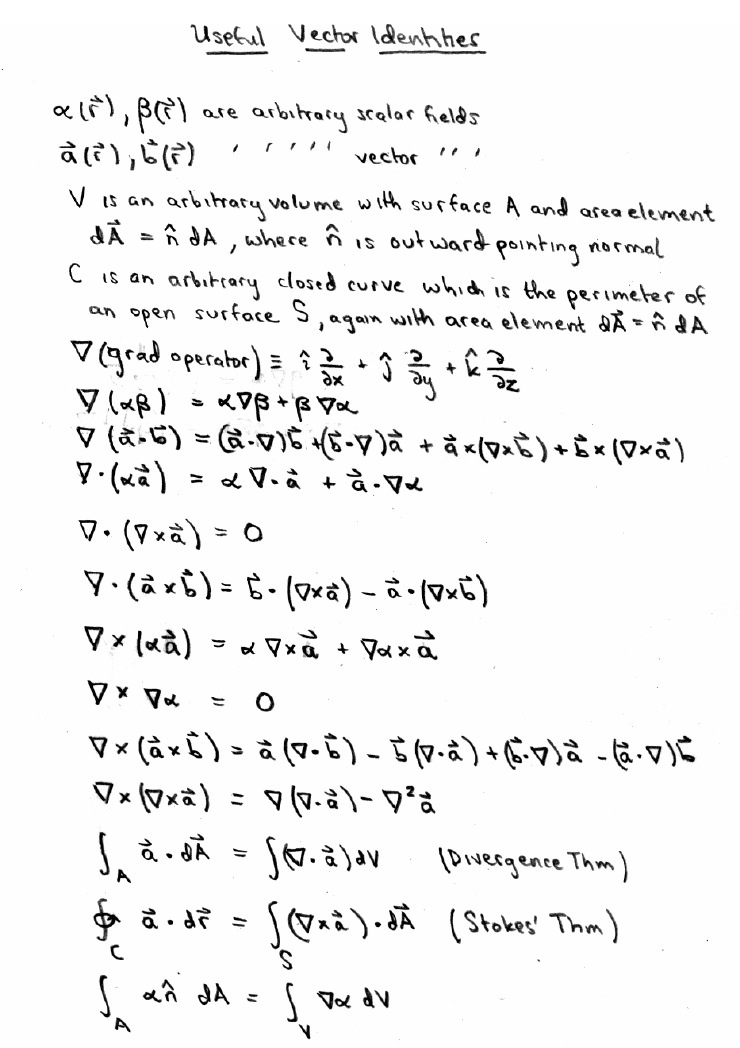 Useful Vector Identities
α(r⃗), β(r⃗) are arbitrary scalar fields
a⃗(r⃗), b⃗(r⃗) ' ' ' ' ' vector ' ' '
V is an arbitrary volume with surface A and area element
dA⃗ = n̂ dA, where n̂ is outward pointing normal
C is an arbitrary closed curve which is the perimeter of
an open surface S, again with area element dA⃗ = n̂ dA
∇(grad operator) ≡ î ∂/∂x + ĵ ∂/∂y + k̂ ∂/∂z
∇(αβ) = α∇β + β∇α
∇(a⃗·b⃗) = (a⃗·∇)b⃗ + (b⃗·∇)a⃗ + a⃗×(∇×b⃗) + b⃗×(∇×a⃗)
∇·(αa⃗) = α∇·a⃗ + a⃗·∇α
∇·(∇×a⃗) = 0
∇·(a⃗×b⃗) = b⃗·(∇×a⃗) − a⃗·(∇×b⃗)
∇×(αa⃗) = α∇×a⃗ + ∇α×a⃗
∇×∇α = 0
∇×(a⃗×b⃗) = a⃗(∇·b⃗) − b⃗(∇·a⃗) + (b⃗·∇)a⃗ − (a⃗·∇)b⃗
∇×(∇×a⃗) = ∇(∇·a⃗) − ∇²a⃗
∫_A a⃗·dA⃗ = ∫(∇·a⃗)dV (Divergence Thm)
∮_C a⃗·dr⃗ = ∫_S (∇×a⃗)·dA⃗ (Stokes' Thm)
∫_A αn̂ dA = ∫_V ∇α dV